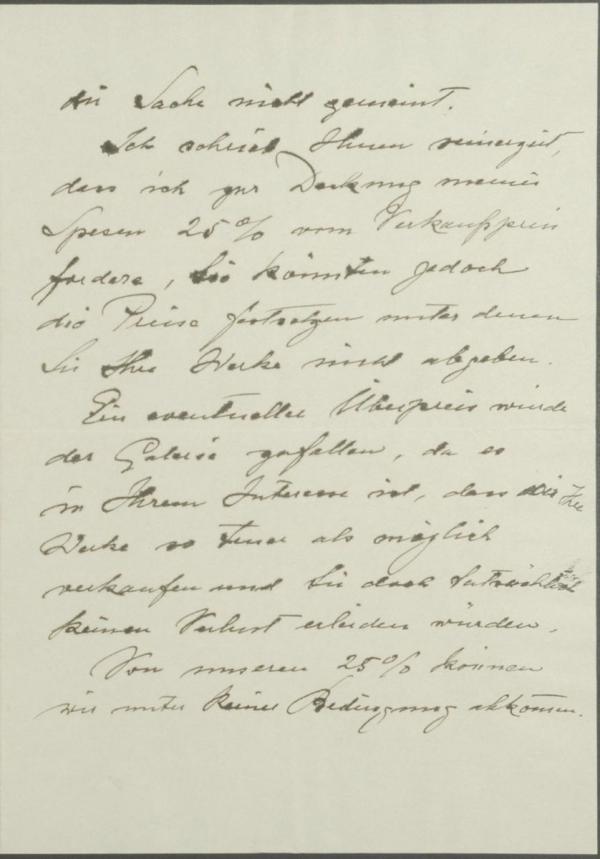 die Sache nicht gemeint.
Ich schrieb Ihnen seinerzeit,
dass ich zur Deckung meiner
Spesen 25% vom Verkaufspreis
fordere, Sie könnten jedoch
die Preise festsetzen unter denen
Sie Ihre Werke nicht abgeben.
Ein eventueller Überpreis würde
der Galerie zufallen, da es
in Ihrem Interesse ist, dass wir Ihre
Werke so teuer als möglich
verkaufen und Sie doch tatsächlich
keinen Verlust erleiden würden.
Von unseren 25% können
wir unter keiner Bedingung abkommen.